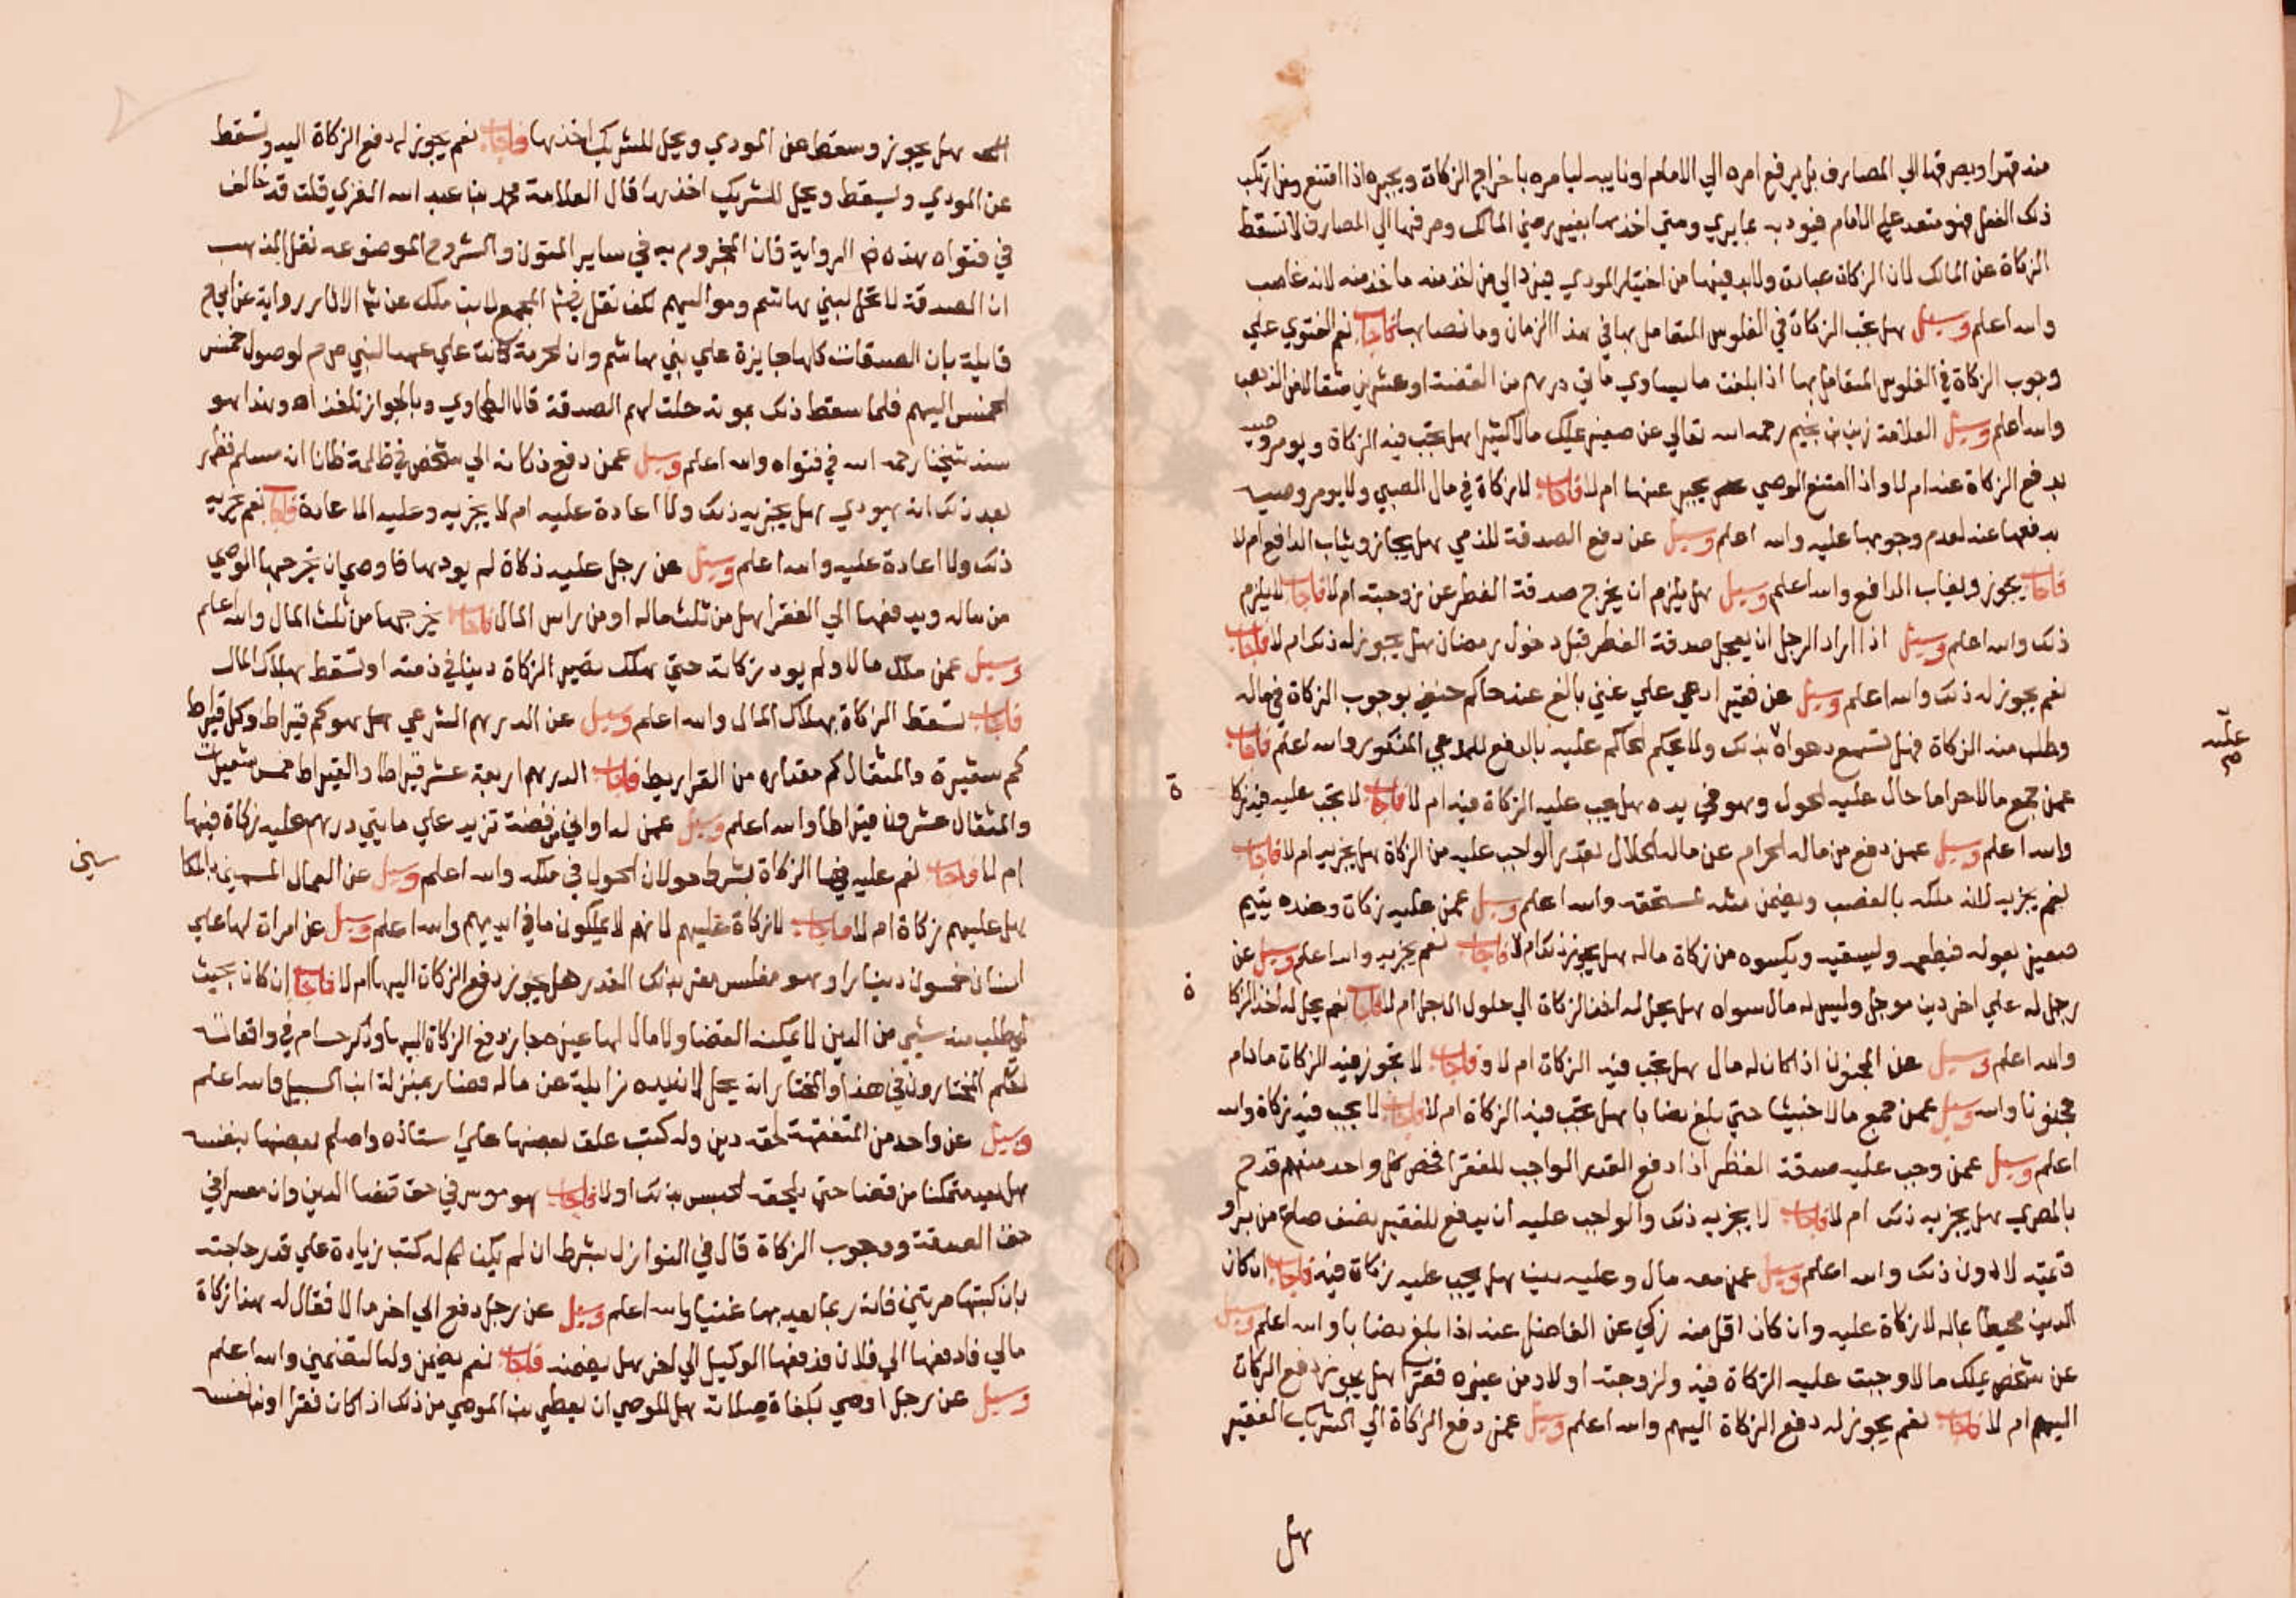 منه قهرا ويصرفها الي المصارف بل يرفع امره الي الامام او نايبه ليامره باخراج الزكاة ويجبره اذا امتنع ومن ارتكب
ذلك الفعل فهو متعد علي الامام فيودبه بما يري ومتي اخذها بغير رضي المالك وصرفها الي المصارف لا تسقط
الزكاة عن المالك لان الزكاة عبادة ولابد فيها من اختيار المودي فيرد الي من اخذ منه ما اخذ منه لانه غاصب
والله اعلم وسيل هل تجب الزكاة في الفلوس المتعامل بها في هذا الزمان وما نصابها فاجاب نعم الفتوي علي
وجوب الزكاة في الفلوس المتعامل بها اذا بلغت ما يساوي مايتي درهم من الفضة او عشرين مثقالا من الذهب
والله اعلم وسيل العلامة زين بن نجيم رحمه الله تعالي عن صغير يملك مالا كثيرا هل تجب فيه الزكاة ويومر وصيه
بدفع الزكاة عنه ام لا واذا امتنع الوصي يجبر عنها ام لا فاجاب لا زكاة في مال الصبي ولا يومر وصيه
بدفعها عنه لعدم وجوبها عليه والله اعلم وسيل عن دفع الصدقة للذمي هل يجاز ويثاب الدافع ام لا
فاجاب يجوز ويثاب الدافع والله اعلم وسيل هل يلزم ان يخرج صدقة الفطر عن زوجته ام لا فاجاب لا يلزم
ذلك والله اعلم وسيل اذا اراد الرجل ان يعجل صدقة الفطر قبل دخول رمضان هل يجوز له ذلك ام لا فاجاب
نعم يجوز له ذلك والله اعلم وسيل عن فقير ادعي علي غني بالغ عند حاكم حنفي بوجوب الزكاة في ماله
وطلب منه الزكاة فهل تسمع دعواه بذلك ولا يحكم الحاكم عليه بالدفع للمدعي المذكور والله اعلم فاجاب
عليه
عمن جمع مالا حراما حال عليه الحول وهو في يده هل يجب عليه الزكاة فيه ام لا فاجاب لا تجب عليه فيه زكا
ة
والله اعلم وسيل عمن دفع من ماله الحرام عن ماله الحلال بقدر الواجب عليه من الزكاة هل يجزيه ام لا فاجاب
نعم يجزيه لانه ملكه بالغصب ويضمن مثله لمستحقه والله اعلم وسيل عمن عليه زكاة وعنده يتيم
صغير يعوله فيطعمه ويسقيه ويكسوه من زكاة ماله هل يجوز ذلك ام لا فاجاب نعم يجزيه والله اعلم وسيل عن
رجل له علي اخر دين موجل وليس له مال سواه هل يحل له اخذ الزكاة الي حلول الاجل ام لا فاجاب نعم يحل له اخذ الزكا
ة
والله اعلم وسيل عن المجنون اذا كان له مال هل تجب فيه الزكاة ام لا فاجاب لا تجوز فيه الزكاة مادام
مجنونا والله وسيل عمن جمع مالا خبيثا حتي بلغ نصابا هل تجب فيه الزكاة ام لا فاجاب لا يجب فيه زكاة والله
اعلم وسيل عمن وجب عليه صدقة الفطر اذا دفع القدر الواجب للفقرا فخص كل واحد منهم قدح
بالمصري هل يجزيه ذلك ام لا فاجاب لا يجزيه ذلك والواجب عليه ان يدفع للفقير نصف صاع من بر او
قيمته لا دون ذلك والله اعلم وسيل عمن معه مال وعليه دين هل يجب عليه زكاة فيه فاجاب ان كان
الدين محيطا بماله لا زكاة عليه وان كان اقل منه زكي عن الفاضل عنه اذا بلغ نصابا والله اعلم وسيل
عن شخص يملك مالا وجبت عليه الزكاة فيه ولزوجته اولاد من غيره فقرا هل يجوز دفع الزكاة
اليهم ام لا فاجاب نعم يجوز له دفع الزكاة اليهم والله اعلم وسيل عمن دفع الزكاة الي الشريك الفقير
هل
هل يجوز وسقط عن المودي ويحل للشريك اخذها فاجاب نعم يجوز له دفع الزكاة اليه وتسقط
عن المودي ويسقط ويحل للشريك اخذها قال العلامة محمد بن عبد الله الغزي قلت قد خالف
في فتواه هذه الرواية فان المجزوم به في ساير المتون والشروح الموضوعه نقل المذهب
ان الصدقة لا تحل لبني هاشم ومواليهم لكن نقل في شرح المجمع لابن ملك عن شرح الاثار رواية عن ابي ح
قايلة بان الصدقات كلها جايزة علي بني هاشم وان الحرمة كانت علي عهد النبي ص م لوصول خمس
الخمس اليهم فلما سقط ذلك بموته حلت لهم الصدقة قال الطحاوي وبالجواز ناخذ اه وهذا هو
سند شيخنا رحمه الله في فتواه والله اعلم وسيل عمن دفع زكاته الي شخص في ظلمة ظانا انه مسلم فظهر
بعد ذلك انه يهودي هل يجزيه ذلك ولا اعادة عليه ام لا يجزيه وعليه الاعادة فاجاب نعم يجزيه
ذلك ولا اعادة عليه والله اعلم وسيل عن رجل عليه زكاة لم يودها فاوصي ان يخرجها الوصي
من ماله ويدفعها الي الفقرا هل من ثلث ماله او من راس المال فاجاب يخرجها من ثلث المال والله اعلم
وسيل عمن ملك مالا ولم يود زكاته حتي هلك تصير الزكاة دينا في ذمته او تسقط بهلاك المال
فاجاب تسقط الزكاة بهلاك المال والله اعلم وسيل عن الدرهم الشرعي هل هو كم قيراط وكل قيراط
كم شعيرة والمثقال كم مقداره من القراريط فاجاب الدرهم اربعة عشر قيراطا والقيراط خمس شعيرات
والمثقال عشرون قيراطا والله اعلم وسيل عمن له اواني من فضة تزيد علي مايتي درهم عليه زكاة فيها
ام لا فاجاب نعم عليه فيها الزكاة بشرط حولان الحول في ملكه والله اعلم وسيل عن العمال المسمين بالمكا
سين
هل عليهم زكاة ام لا فاجاب لا زكاة عليهم لانهم لا يملكون ما في ايديهم والله اعلم وسيل عن امراة لها علي
انسان خمسون دينارا وهو مفلس مقر بذلك القدر هل يجوز دفع الزكاة اليها ام لا فاجاب ان كان بحيث
لو طلب منه شيي من الدين لا يمكنه القضا ولا مال لها غيره جاز دفع الزكاة اليها وذكر حسام في واقعاته
تكلم المختارون في هذا والمختار انه يحل لان يده زايلة عن ماله فصار بمنزلة ابن السبيل والله اعلم
وسيل عن واحد من المتفقهة لحقه دين وله كتب علق بعضها علي استاذه واصلح بعضها بنفسه
هل يعد متمكنا من قضا حتي يلحقه الحبس بذلك او لا فاجاب هو موسر في حق قضا الدين وان معسرا في
حق الصدقة ووجوب الزكاة قال في النوازل بشرط ان لم يكن له كتب زيادة علي قدر حاجته
بان كتبها مرتين فانه ربما يعد بها غنيا والله اعلم وسيل عن رجل دفع الي اخر مالا فقال له هذا زكاة
مالي فادفعها الي فلان فدفعها الوكيل الي اخر هل يضمنه فاجاب نعم يضمن وله التضمين والله اعلم
وسيل عن رجل اوصي بكفارة صلاته هل للوصي ان يعطي بن الموصي من ذلك اذا كان فقرا او نفسه